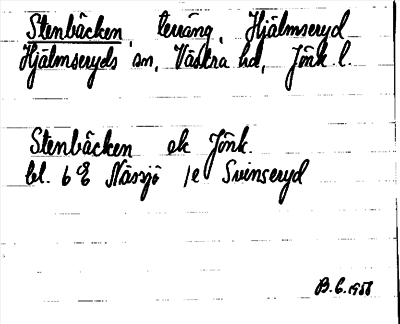 Stenbäcken, terräng, Hjälmseryd
Hjälmseryds sn, Västra hd, Jönk. l.
Stenbäcken ek Jönk.
bl. 6 E Nässjö 1e Svinseryd
B.C. 1958